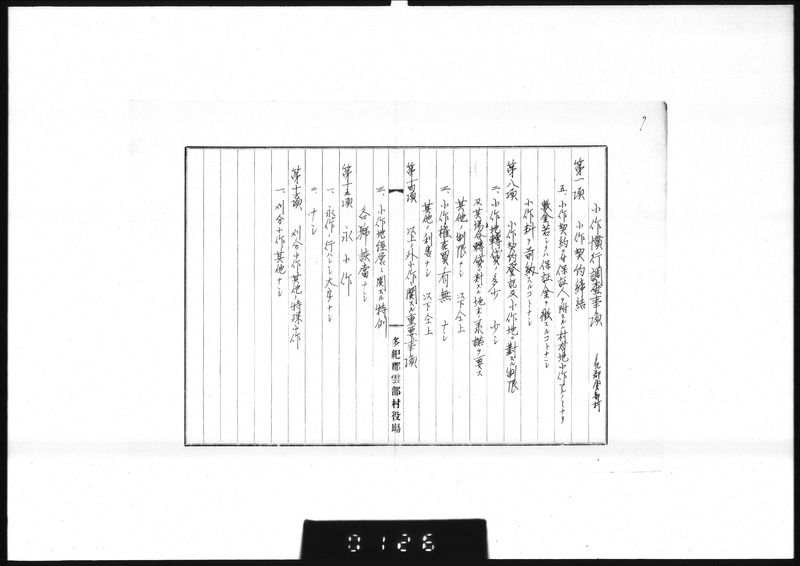 7
小作慣行調査事項
多紀郡雲部村
第一項 小作契約締結
五、小作契約ノ際保証人ヲ附スルハ村有地小作スルノミナリ
敷金若シクハ保証金ヲ徴スルコトナシ
小作料ヲ前納スルコトナシ
第八項 小作契約登記及小作地ニ對スル制限
二、小作地轉貸ノ多少 少シ
及其場合轉貸ニ對スル地主ノ承諾ヲ要ス
其他ノ制限ナシ 以下仝上
三、小作権賣買有無 ナシ
其他ノ利害ナシ 以下仝上
第十四項 以上ノ外小作ニ關スル重要事項
三、小作地經営ニ關スル特例
各歸該當ナシ
第十五項 永小作
一、永作ノ行ハレシ大字ナシ
二、ナシ
第十六項 刈分小作其他ノ特殊小作
一、刈分小作其他ナシ
多紀郡雲部村役場
0126